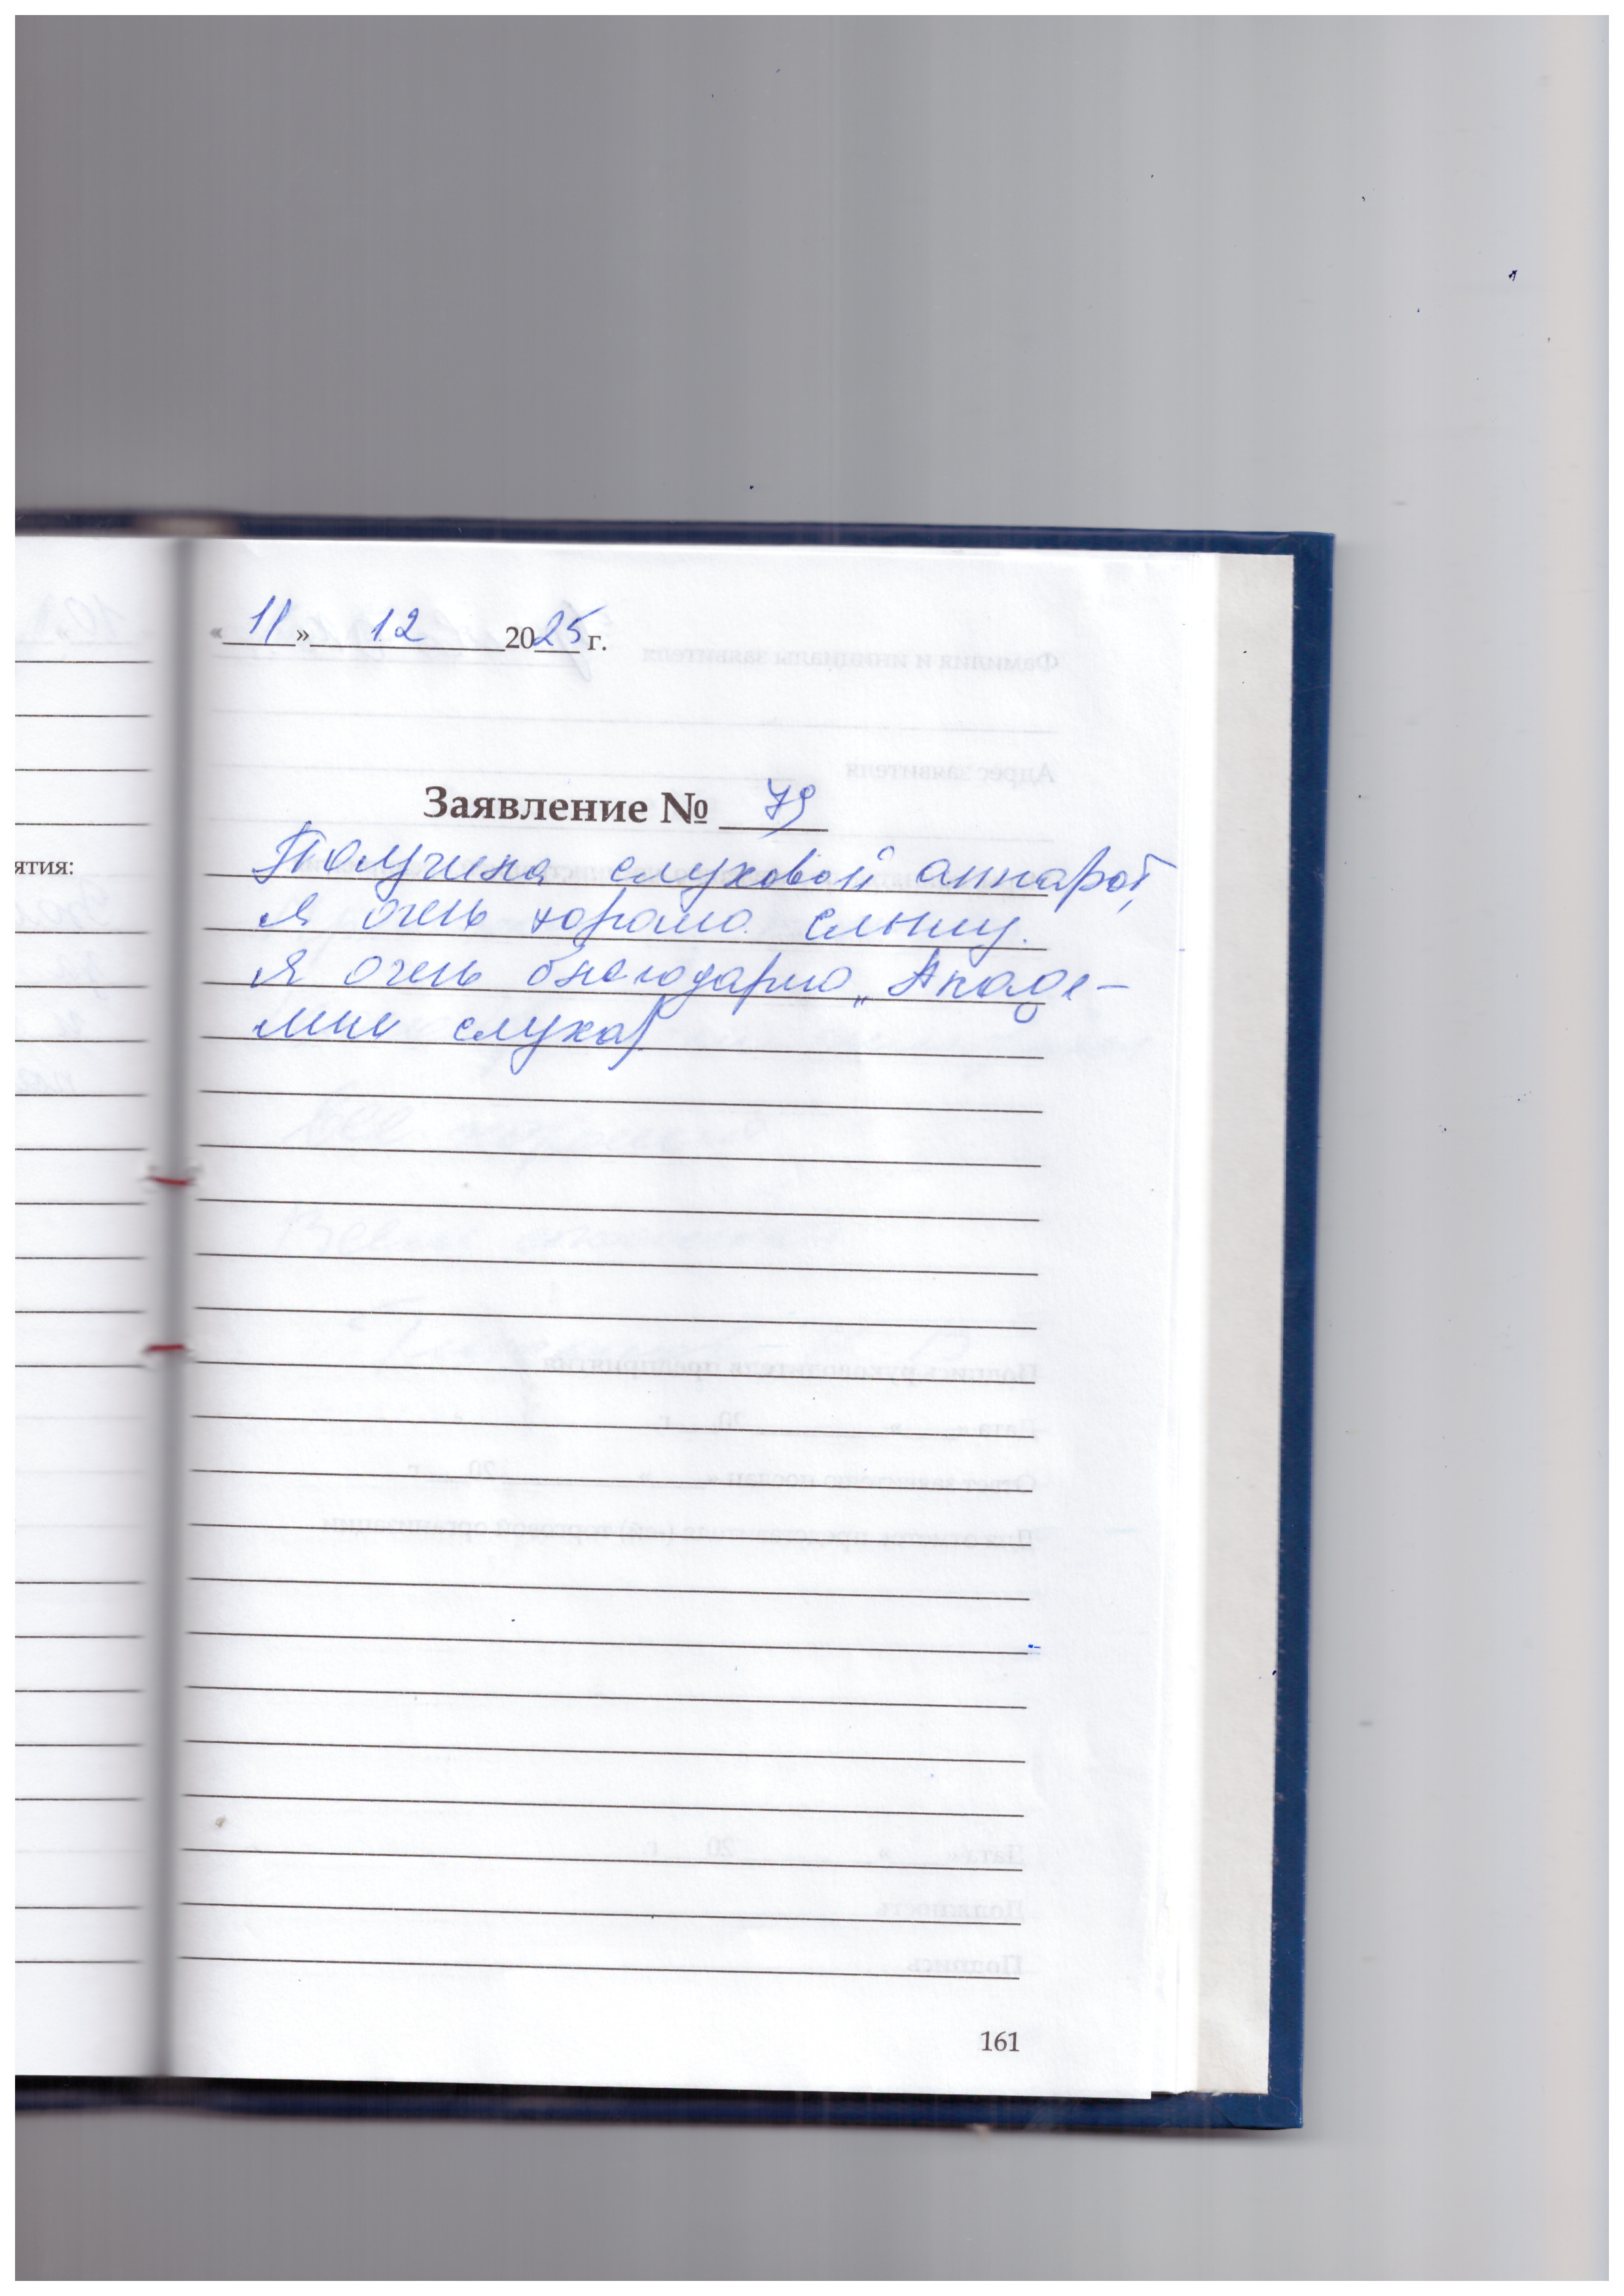 «11» 12 2025 г.
Заявление № 79
ятия:
Получила слуховой аппарат,
я очень хорошо слышу.
Я очень благодарна „Акаде-
мии слуха"
161